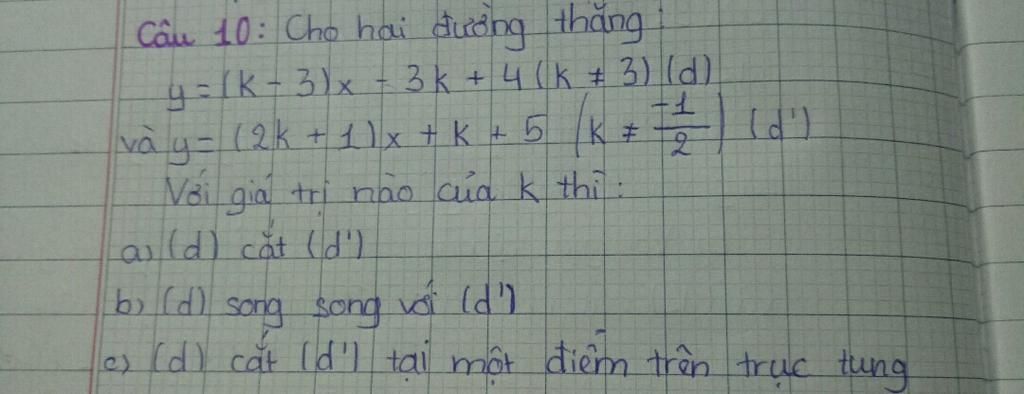 Câu 10: Cho hai đường thẳng:
y = (k - 3)x - 3k + 4 (k ≠ 3) (d)
và y = (2k + 1)x + k + 5 (k ≠ -1/2) (d')
Với giá trị nào của k thì:
a) (d) cắt (d')
b) (d) song song với (d')
c) (d) cắt (d') tại một điểm trên trục tung